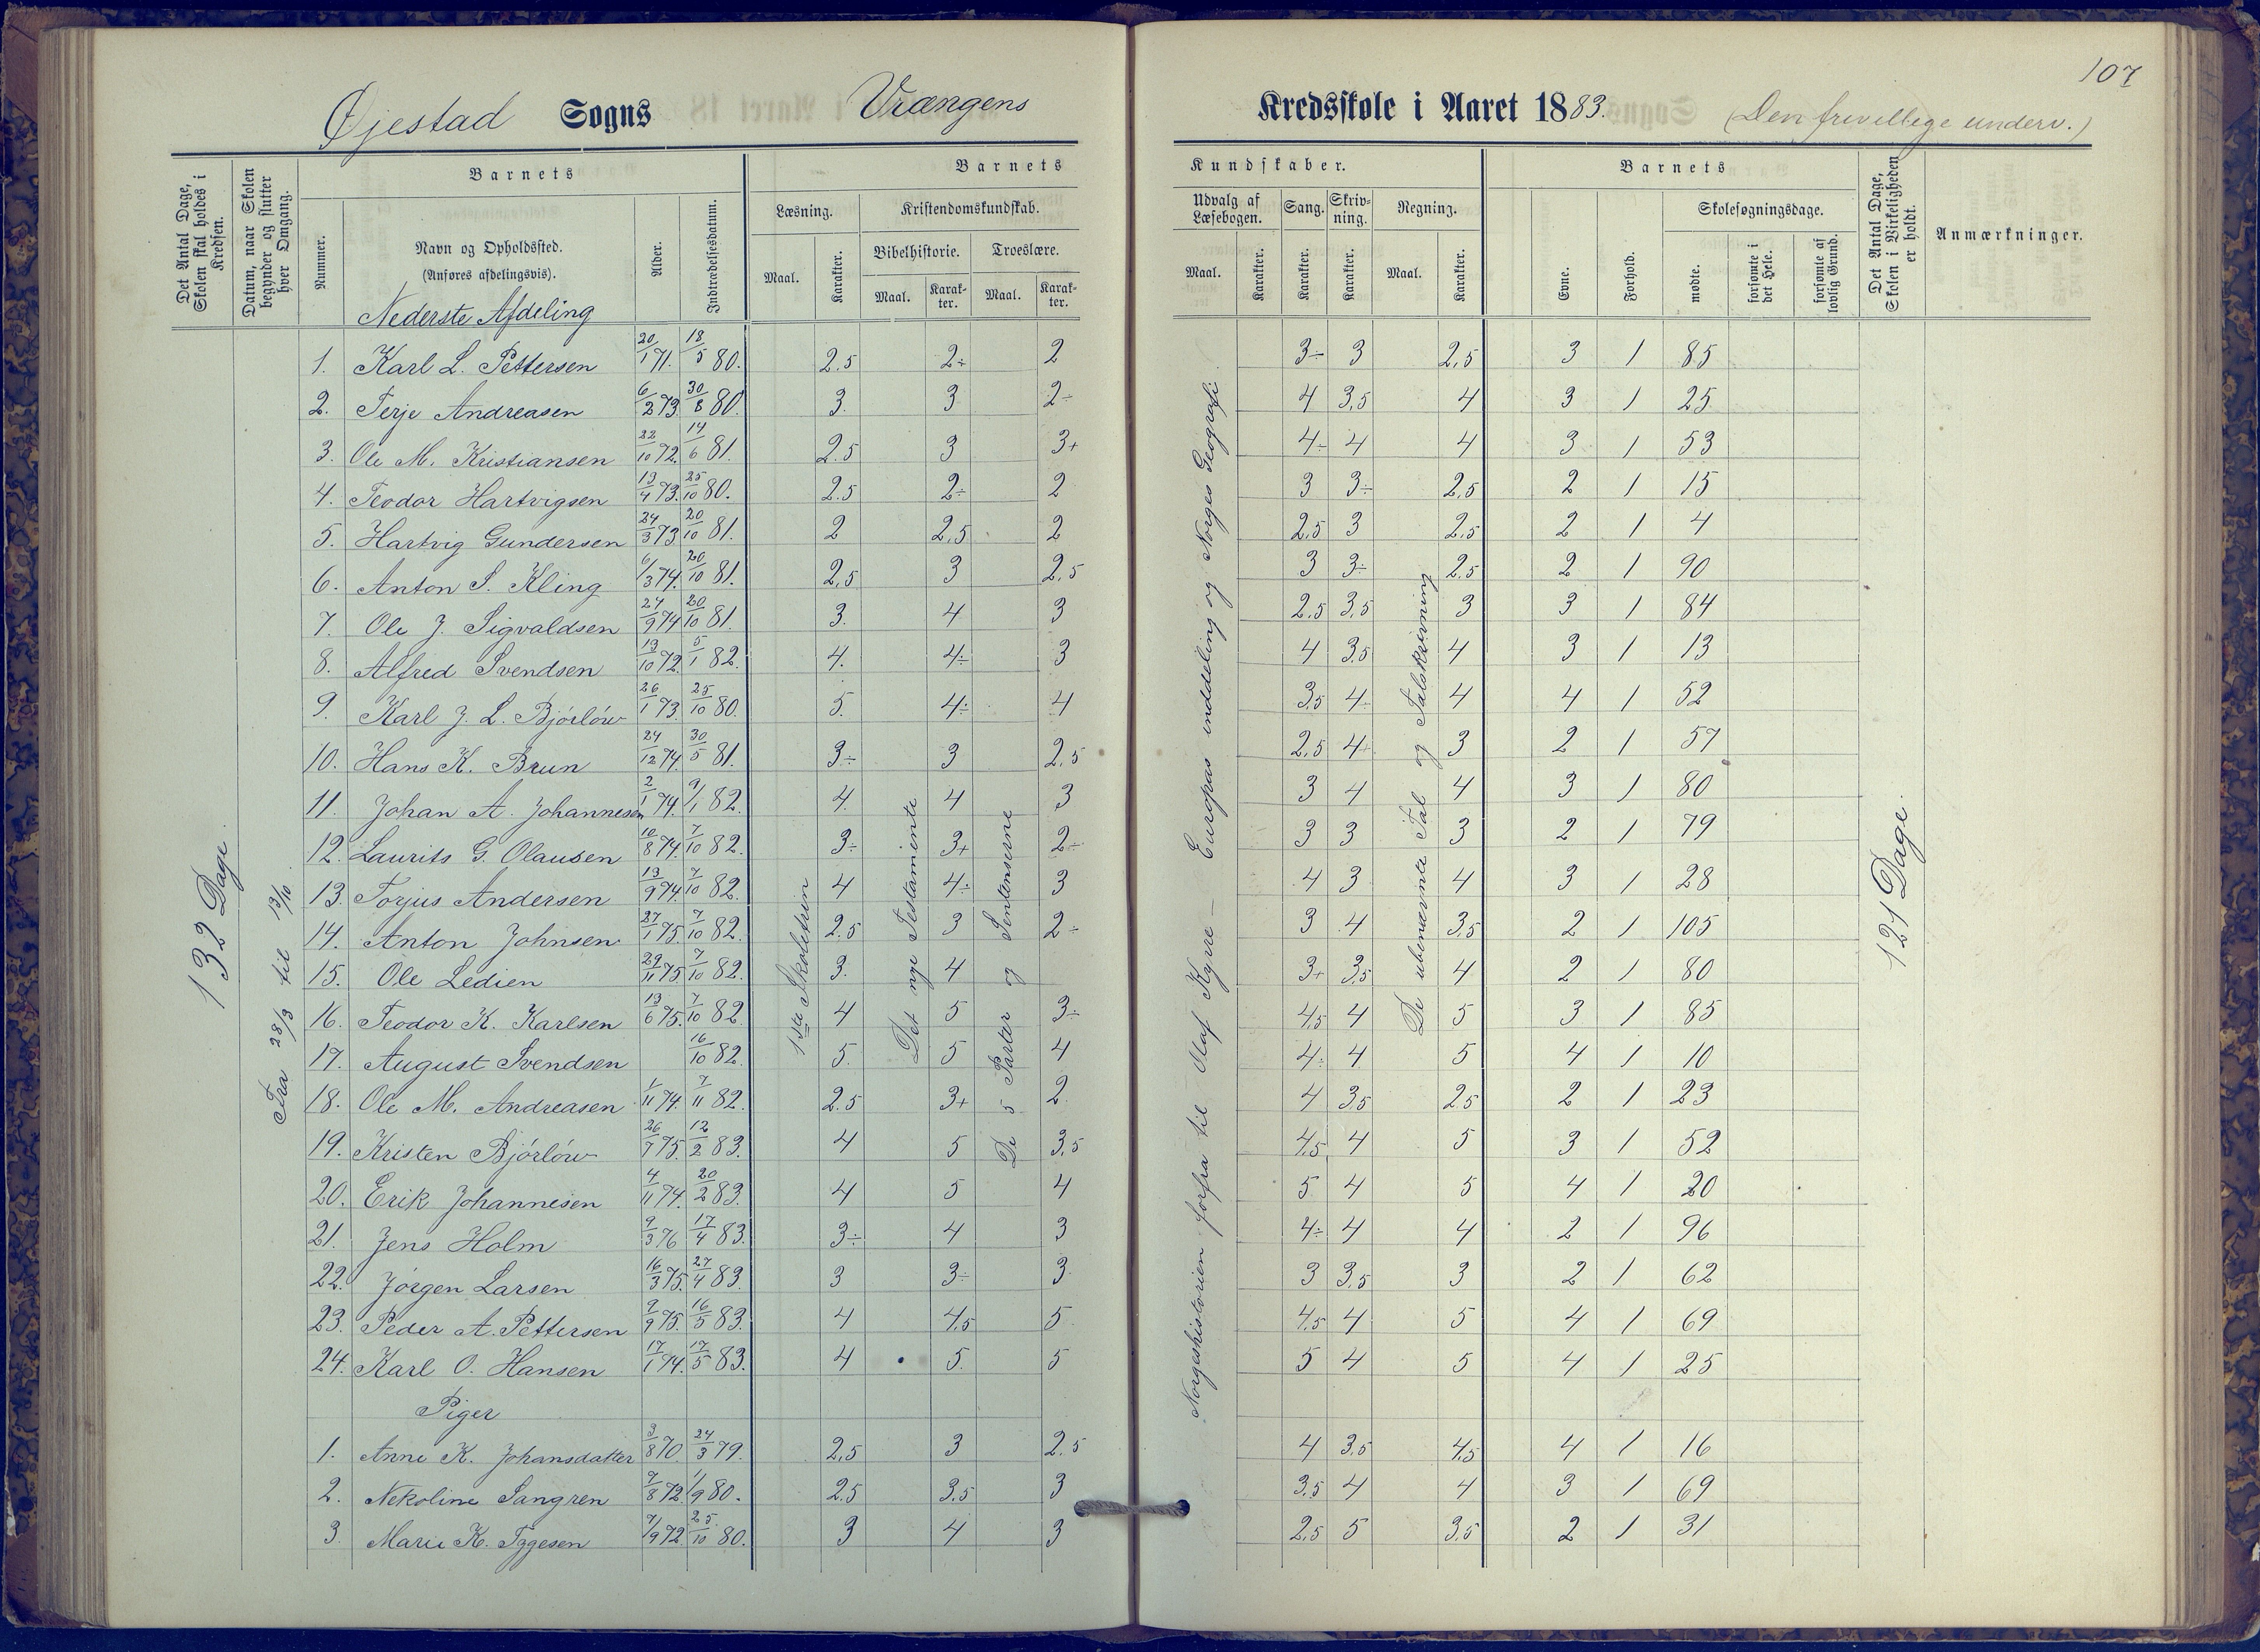 107
Øjestad Sogns Vrængens Kredsskole i Aaret 1883. (Den frivellige underv.)
Det Antal Dage, Skolen skal holdes i Kredsen.
Datum, naar Skolen begynder og slutter hver Omgang.
Barnets
Nummer.
Navn og Opholdssted.
(Anføres afdelingsvis).
Nederste Afdeling
Alder.
Indtrædelsesdatum.
Barnets Kundskaber.
Læsning.
Maal.
Karakter.
Kristendomskundskab.
Bibelhistorie.
Maal.
Karakter.
Troeslære.
Maal.
Karakter.
Udvalg af Læsebogen.
Maal.
Karakter.
Sang.
Karakter.
Skrivning.
Karakter.
Regning.
Maal.
Karakter.
Barnets
Evne.
Forhold.
Skolesøgningsdage.
mødte.
forsømte i det Hele.
forsømte af lovlig Grund.
Det Antal Dage, Skolen i Virkeligheden er holdt.
Anmærkninger.
132 Dage.
Fra 28/3 til 13/10
1ste Skoletrin
Det nye Testamente
De 5 Parter og Sentenserne
Norgeshistorien forfra til Olaf Kyrre — Europas inddeling og Norges Geografi
De ubenævnte Tal og Talskrivning
121 Dage.
1. Karl L. Pettersen 20/1 71. 18/5 80. 2.5 2÷ 2 3÷ 3 2,5 3 1 85
2. Terje Andreasen 6/2 73 30/8 80. 3. 3 2÷ 4 3,5 4 3 1 25
3. Ole M. Kristiansen 22/10 72. 14/6 81. 2.5 3 3+ 4÷ 4 4 3 1 53
4. Teodor Hartvigsen 13/4 73. 25/10 80. 2.5 2÷ 2 3 3÷ 2,5 2 1 15
5. Hartvig Gundersen 24/3 73 20/10 81. 2 2,5 2 2,5 3 2,5 2 1 4
6. Anton S. Kling 6/3 74. 20/10 81. 2,5 3 2,5 3 3÷ 2,5 2 1 90
7. Ole J. Sigvaldsen 24/9 74 20/10 81. 3. 4 3 2,5 3,5 3 3 1 84
8. Alfred Svendsen 13/10 72. 5/1 82. 4. 4÷ 3 4 3,5 4 3 1 13
9. Karl J. L. Bjórlów 26/1 73. 25/10 80. 5. 4÷ 4 3,5 4÷ 4 4 1 52
10. Hans K. Brun 24/12 74. 30/5 81. 3÷ 3 2,5 2,5 4+ 3 2 1 57
11. Johan A. Johannesen 2/1 74. 9/1 82. 4. 4 3 3 4 4 3 1 80
12. Laurits G. Olausen 10/8 74. 7/10 82. 3÷ 3+ 2÷ 3 3 3 2 1 79
13. Torjus Andersen 13/9 74. 7/10 82. 4 4÷ 3 4 3 4 3 1 28
14. Anton Johnsen 27/1 75. 7/10 82. 2.5 3 2÷ 3 4 3,5 2 1 105
15. Ole Ledien 29/11 75. 7/10 82. 3. 4 3+ 3,5 4 2 1 80
16. Teodor K. Karlsen 13/6 75. 7/10 82. 4 5 3÷ 4,5 4 5 3 1 85
17. August Svendsen 16/10 82. 5. 5 4 4÷ 4 5 4 1 10
18. Ole M. Andreasen 1/11 74. 7/11 82. 2.5 3+ 2. 4 3,5 2,5 2 1 23
19. Kristen Bjórlów 26/7 75. 12/2 83. 4 5 3,5 4,5 4 5 3 1 52
20. Erik Johannesen 4/11 74. 20/2 83. 4 5 4 5 4 5 4 1 20
21. Jens Holm 9/3 76 17/4 83. 3÷ 4 3 4÷ 4 4 2 1 96
22. Jörgen Larsen 16/3 75. 27/4 83. 3 3÷ 3 3 3,5 3 2 1 62
23. Peder A. Pettersen 9/9 75. 16/5 83. 4 4,5 5 4,5 4 5 4 1 69
24. Karl O. Hansen 17/1 74. 17/5 83. 4 5. 5 5 4 5 4 1 25
Piger
1. Anne K. Johansdatter 3/8 70. 24/3 79. 2,5 3 2.5 4 3,5 4,5 4 1 16
2. Nekoline Sangren 7/8 72. 1/9 80. 2.5 3,5 3 3,5 4 4 3 1 69
3. Marie K. Tygesen 7/9 72. 25/10 80. 3 4 3 2,5 5 3,5 2 1 31